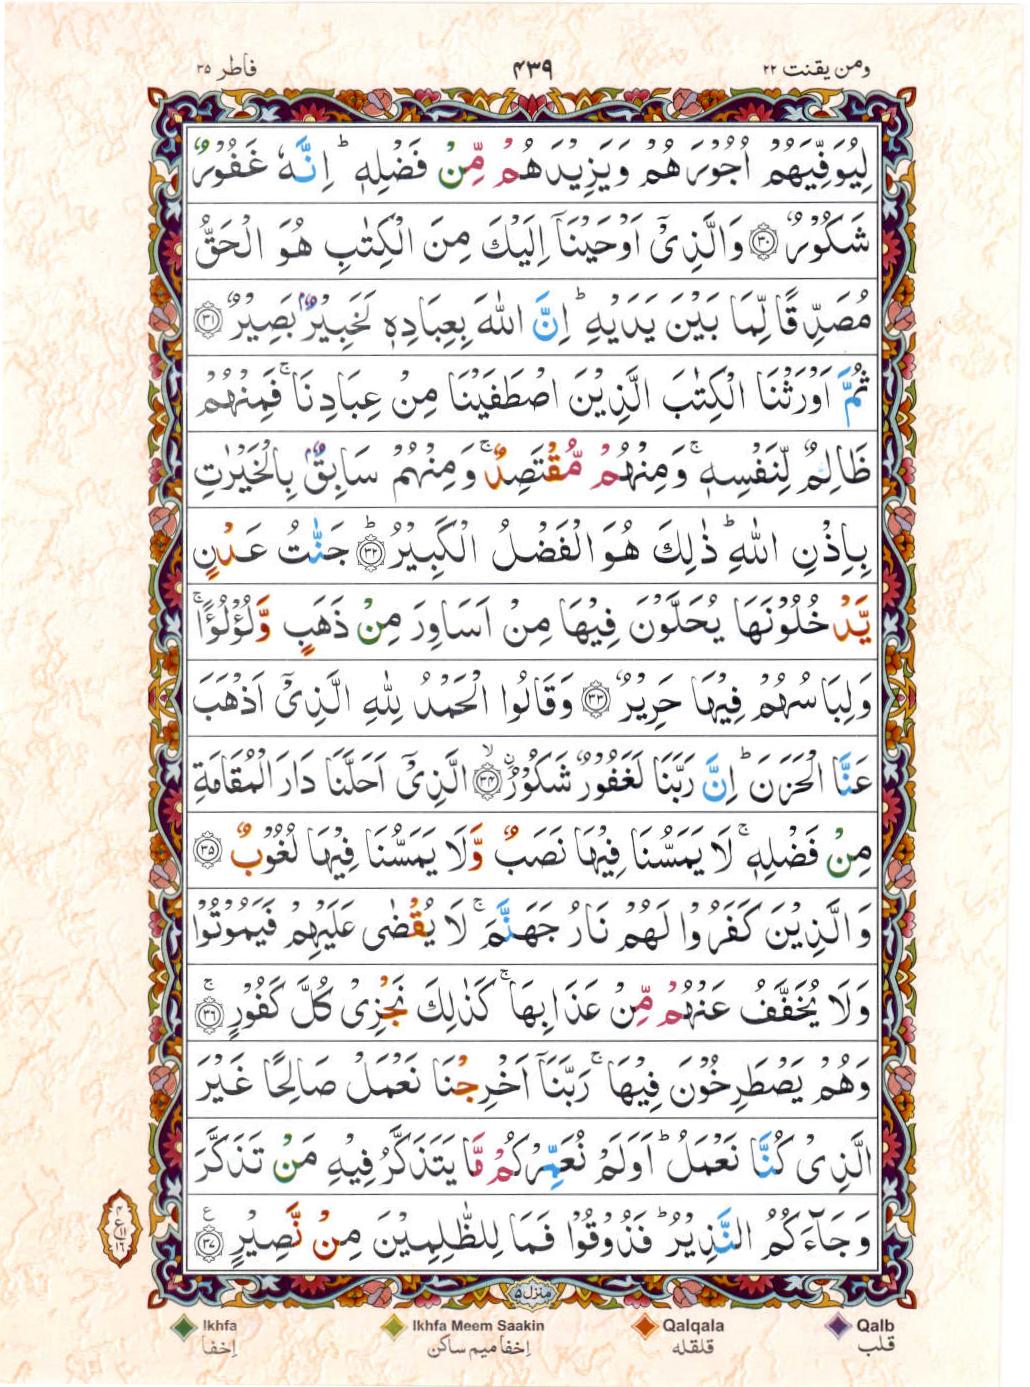 ومن یقنت ۲۲
۴۳۹
فاطر ۳۵
لِیُوَفِّیَهُمْ اُجُوْرَهُمْ وَیَزِیْدَهُمْ مِّنْ فَضْلِهٖ ؕ اِنَّهٗ غَفُوْرٌ
شَكُوْرٌ ﴿۳۰﴾ وَالَّذِیْۤ اَوْحَیْنَاۤ اِلَیْكَ مِنَ الْكِتٰبِ هُوَ الْحَقُّ
مُصَدِّقًا لِّمَا بَیْنَ یَدَیْهِ ؕ اِنَّ اللّٰهَ بِعِبَادِهٖ لَخَبِیْرٌۢ بَصِیْرٌ ﴿۳۱﴾
ثُمَّ اَوْرَثْنَا الْكِتٰبَ الَّذِیْنَ اصْطَفَیْنَا مِنْ عِبَادِنَا ۚ فَمِنْهُمْ
ظَالِمٌ لِّنَفْسِهٖ ۚ وَمِنْهُمْ مُّقْتَصِدٌ ۚ وَمِنْهُمْ سَابِقٌۢ بِالْخَیْرٰتِ
بِاِذْنِ اللّٰهِ ؕ ذٰلِكَ هُوَ الْفَضْلُ الْكَبِیْرُ ﴿۳۲﴾ؕ جَنّٰتُ عَدْنٍ
یَّدْخُلُوْنَهَا یُحَلَّوْنَ فِیْهَا مِنْ اَسَاوِرَ مِنْ ذَهَبٍ وَّلُؤْلُؤًا ۚ
وَلِبَاسُهُمْ فِیْهَا حَرِیْرٌ ﴿۳۳﴾ وَقَالُوا الْحَمْدُ لِلّٰهِ الَّذِیْۤ اَذْهَبَ
عَنَّا الْحَزَنَ ؕ اِنَّ رَبَّنَا لَغَفُوْرٌ شَكُوْرُ ﴿۳۴﴾ۙ الَّذِیْۤ اَحَلَّنَا دَارَ الْمُقَامَةِ
مِنْ فَضْلِهٖ ۚ لَا یَمَسُّنَا فِیْهَا نَصَبٌ وَّلَا یَمَسُّنَا فِیْهَا لُغُوْبٌ ﴿۳۵﴾
وَالَّذِیْنَ كَفَرُوْا لَهُمْ نَارُ جَهَنَّمَ ۚ لَا یُقْضٰی عَلَیْهِمْ فَیَمُوْتُوْا
وَلَا یُخَفَّفُ عَنْهُمْ مِّنْ عَذَابِهَا ؕ كَذٰلِكَ نَجْزِیْ كُلَّ كَفُوْرٍ ﴿۳۶﴾ۚ
وَهُمْ یَصْطَرِخُوْنَ فِیْهَا ۚ رَبَّنَاۤ اَخْرِجْنَا نَعْمَلْ صَالِحًا غَیْرَ
الَّذِیْ كُنَّا نَعْمَلُ ؕ اَوَلَمْ نُعَمِّرْكُمْ مَّا یَتَذَكَّرُ فِیْهِ مَنْ تَذَكَّرَ
وَجَآءَكُمُ النَّذِیْرُ ؕ فَذُوْقُوْا فَمَا لِلظّٰلِمِیْنَ مِنْ نَّصِیْرٍ ﴿۳۷﴾ع
منزل ۵
Ikhfa
اِخفا
Ikhfa Meem Saakin
اِخفا میم ساکن
Qalqala
قلقله
Qalb
قلب